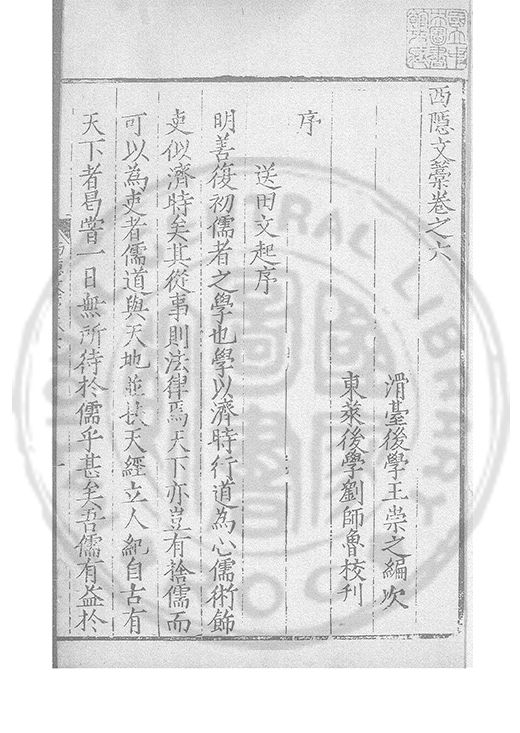 西隱文藁卷之六
滑臺後學王崇之編次
東萊後學劉師魯校刋
序
送田文起序
明善復初儒者之學也學以濟時行道為心儒術飾
吏似濟時矣其從事則法律焉天下亦豈有捨儒而
可以為吏者儒道與天地並扶天經立人紀自古有
天下者曷甞一日無所待於儒乎甚矣吾儒有益於
CENTRAL LIBRARY